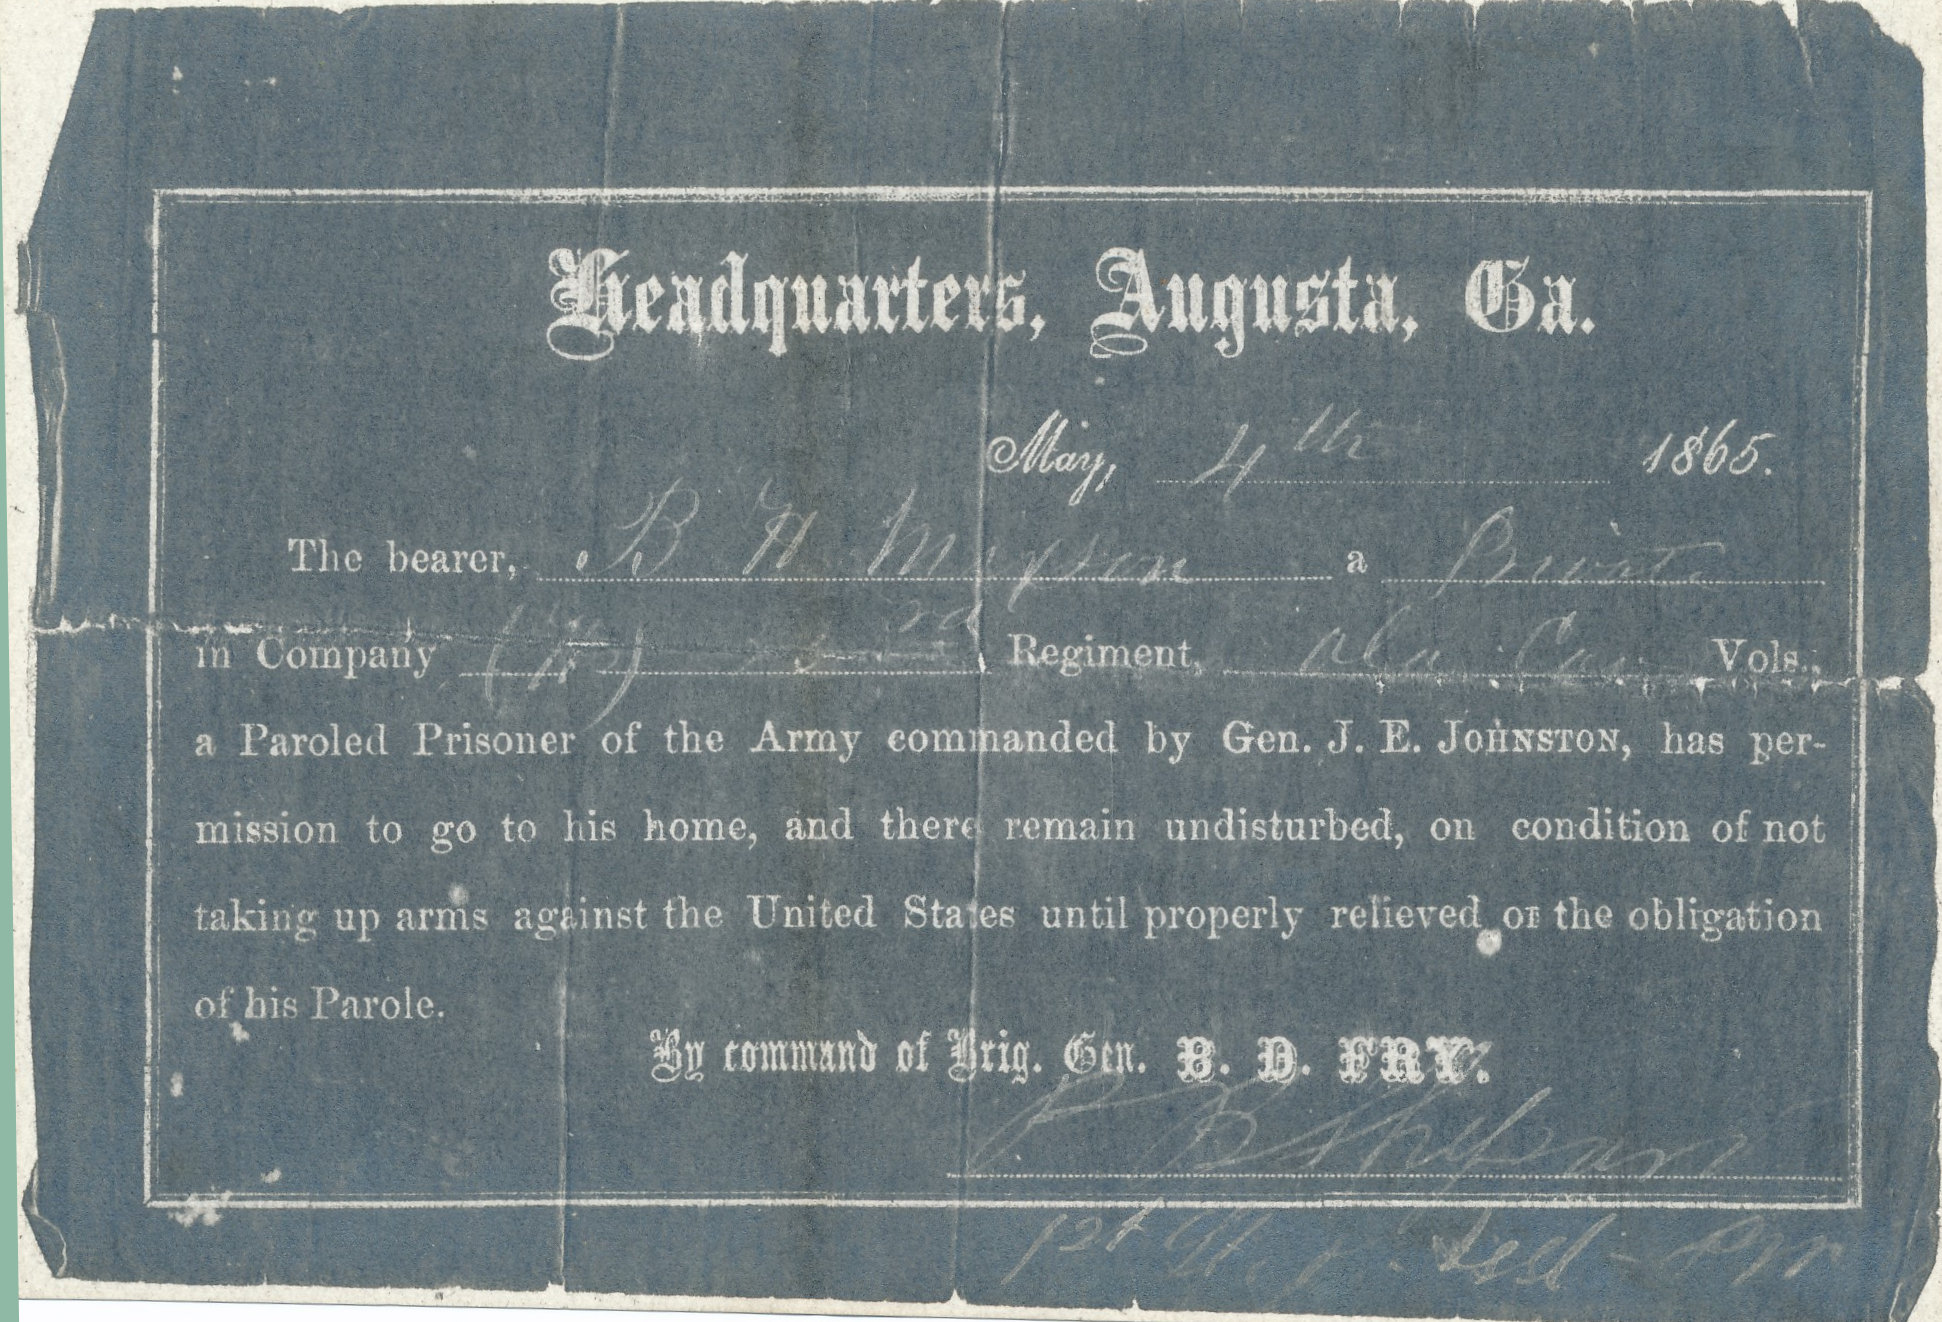 Headquarters, Augusta, Ga.
May, 4th 1865.
The bearer, B H Mayson a Private
in Company Regiment, Ala Cav Vols.,
a Paroled Prisoner of the Army commanded by Gen. J. E. JOHNSTON, has per-
mission to go to his home, and there remain undisturbed, on condition of not
taking up arms against the United States until properly relieved of the obligation
of his Parole.
By command of Brig. Gen. B. D. FRY.
1st Lt